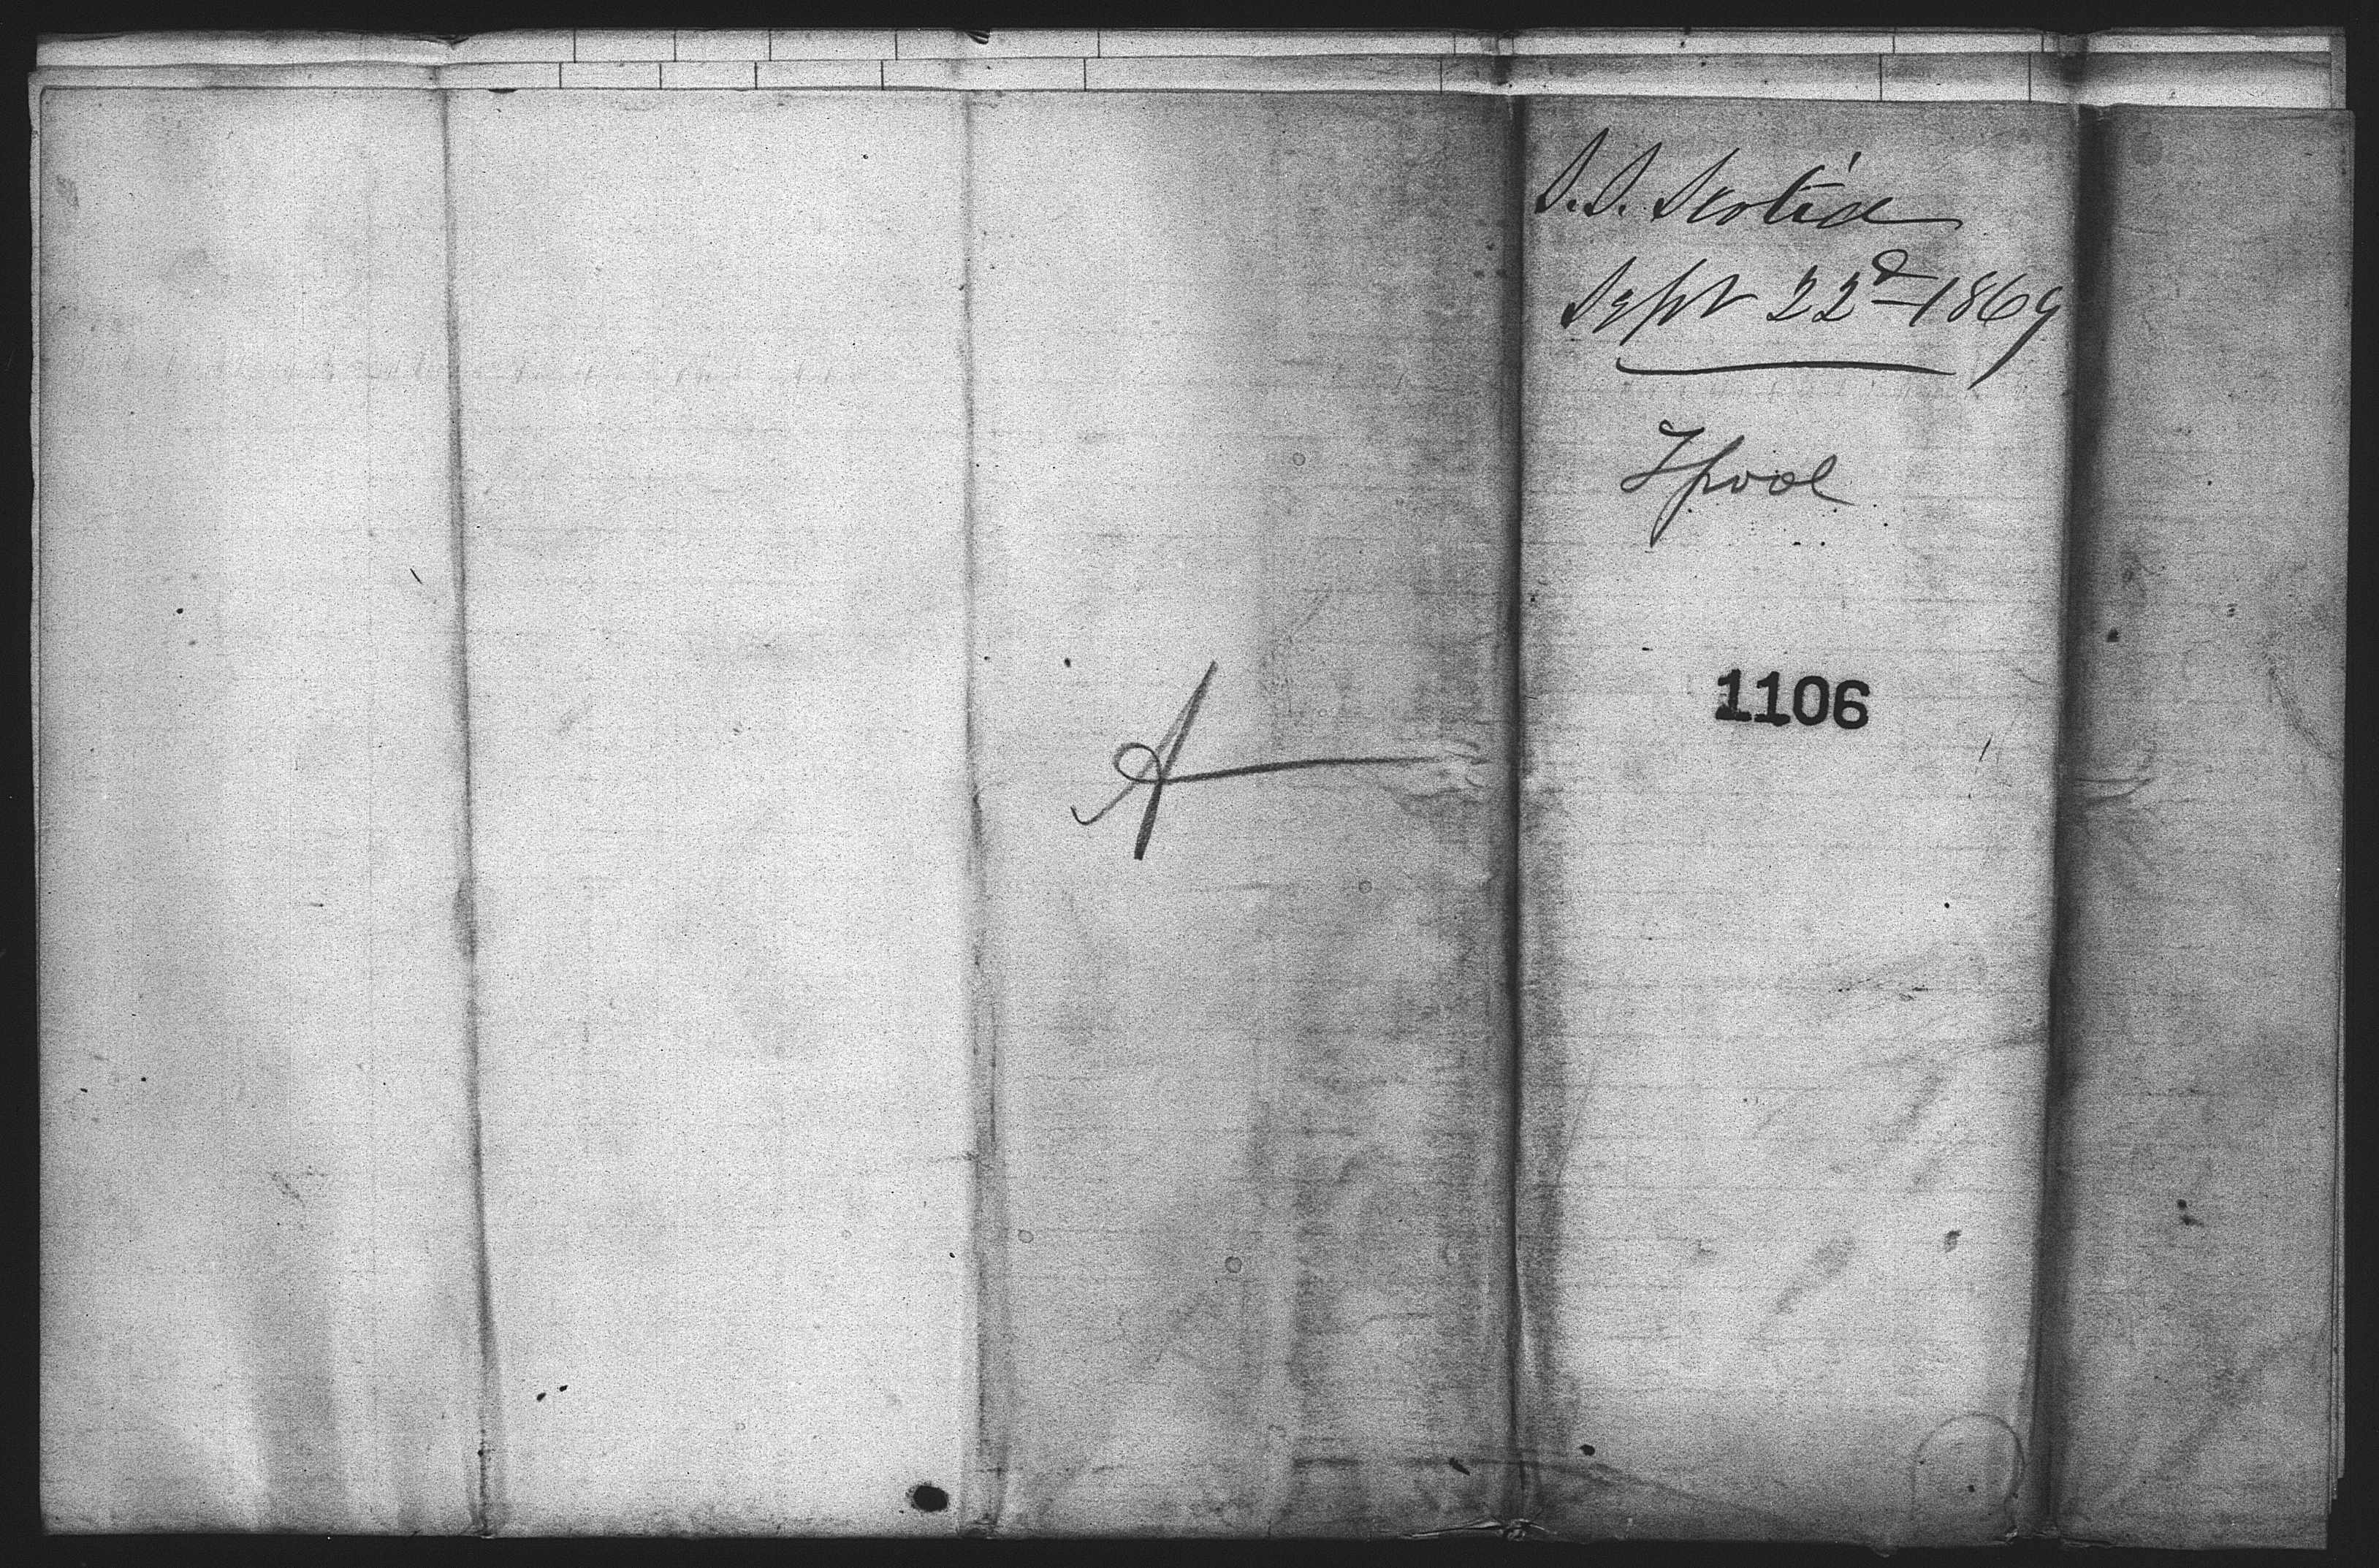 S.S. Scotia
Sept 22d 1869
Lpool
1106
A